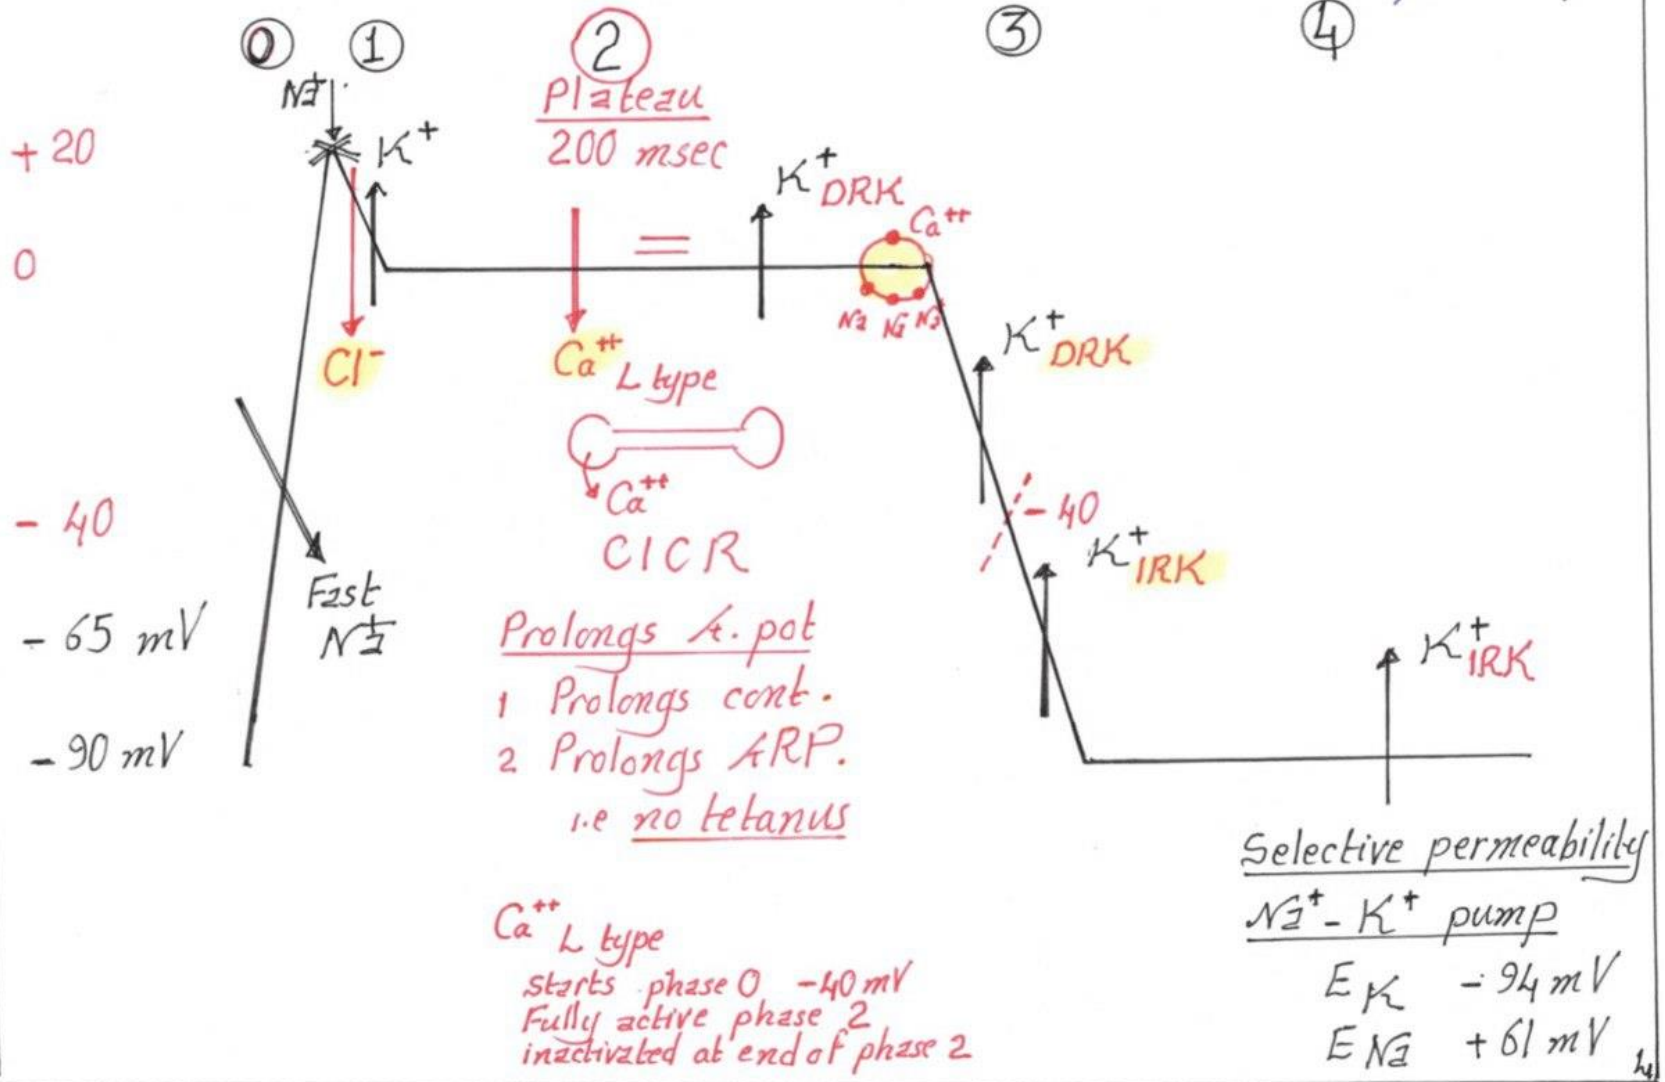 0 1 2 3 4
Na+
K+
Plateau
200 msec
+ 20
0
- 40
- 65 mV
- 90 mV
Cl-
Fast
Na+
Ca++ L type
Ca++
CICR
K+ DRK
Ca++
Na Na Na
K+ DRK
- 40
K+ IRK
K+ IRK
=
Prolongs A. pot
1 Prolongs cont.
2 Prolongs ARP.
i.e no tetanus
Ca++ L type
starts phase 0 -40 mV
Fully active phase 2
inactivated at end of phase 2
Selective permeability
Na+ - K+ pump
E K - 94 mV
E Na + 61 mV